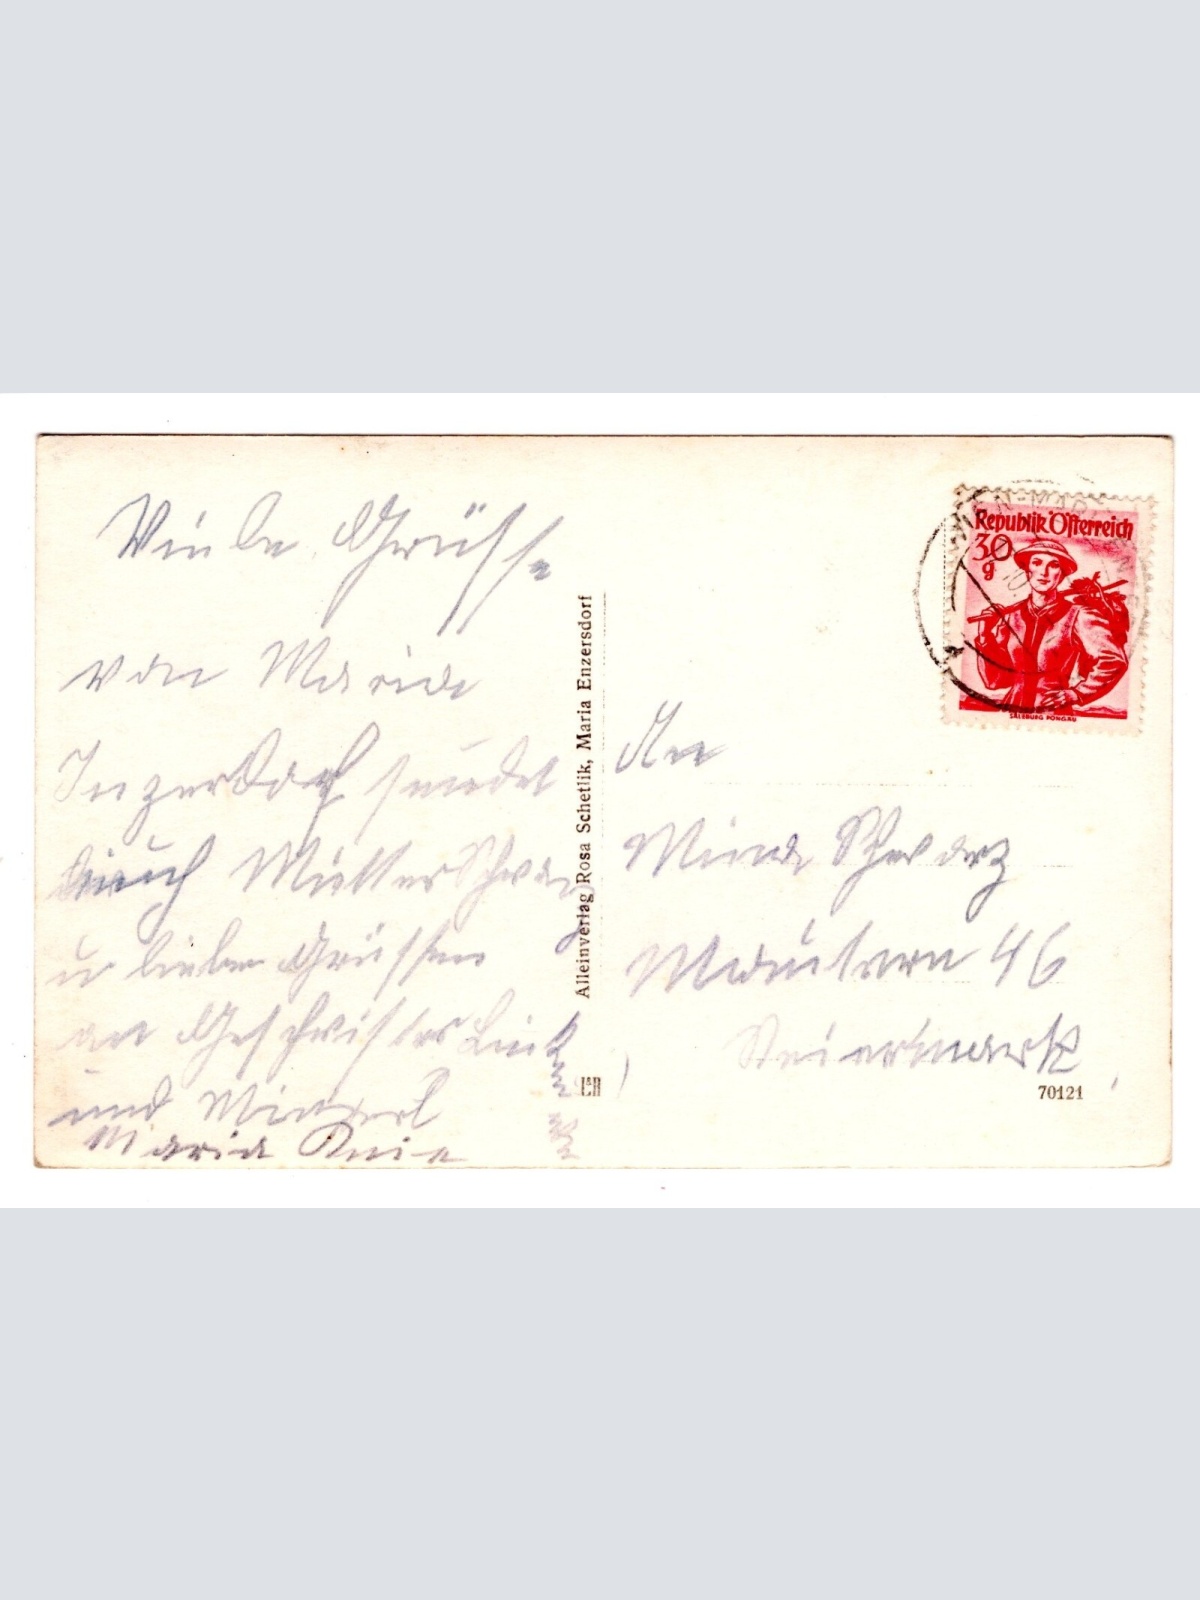 Viele Grüsse
von Maria
Inzersdorf sendet
durch Mutter Schwarz
u lieben Grüssen
an Geschwister
und
Maria
Alleinverlag Rosa Schetlik, Maria Enzersdorf
Republik Österreich
30
g
SALZBURG PONGAU
An
Mina Schwarz
Mautern 46
Steiermark
70121